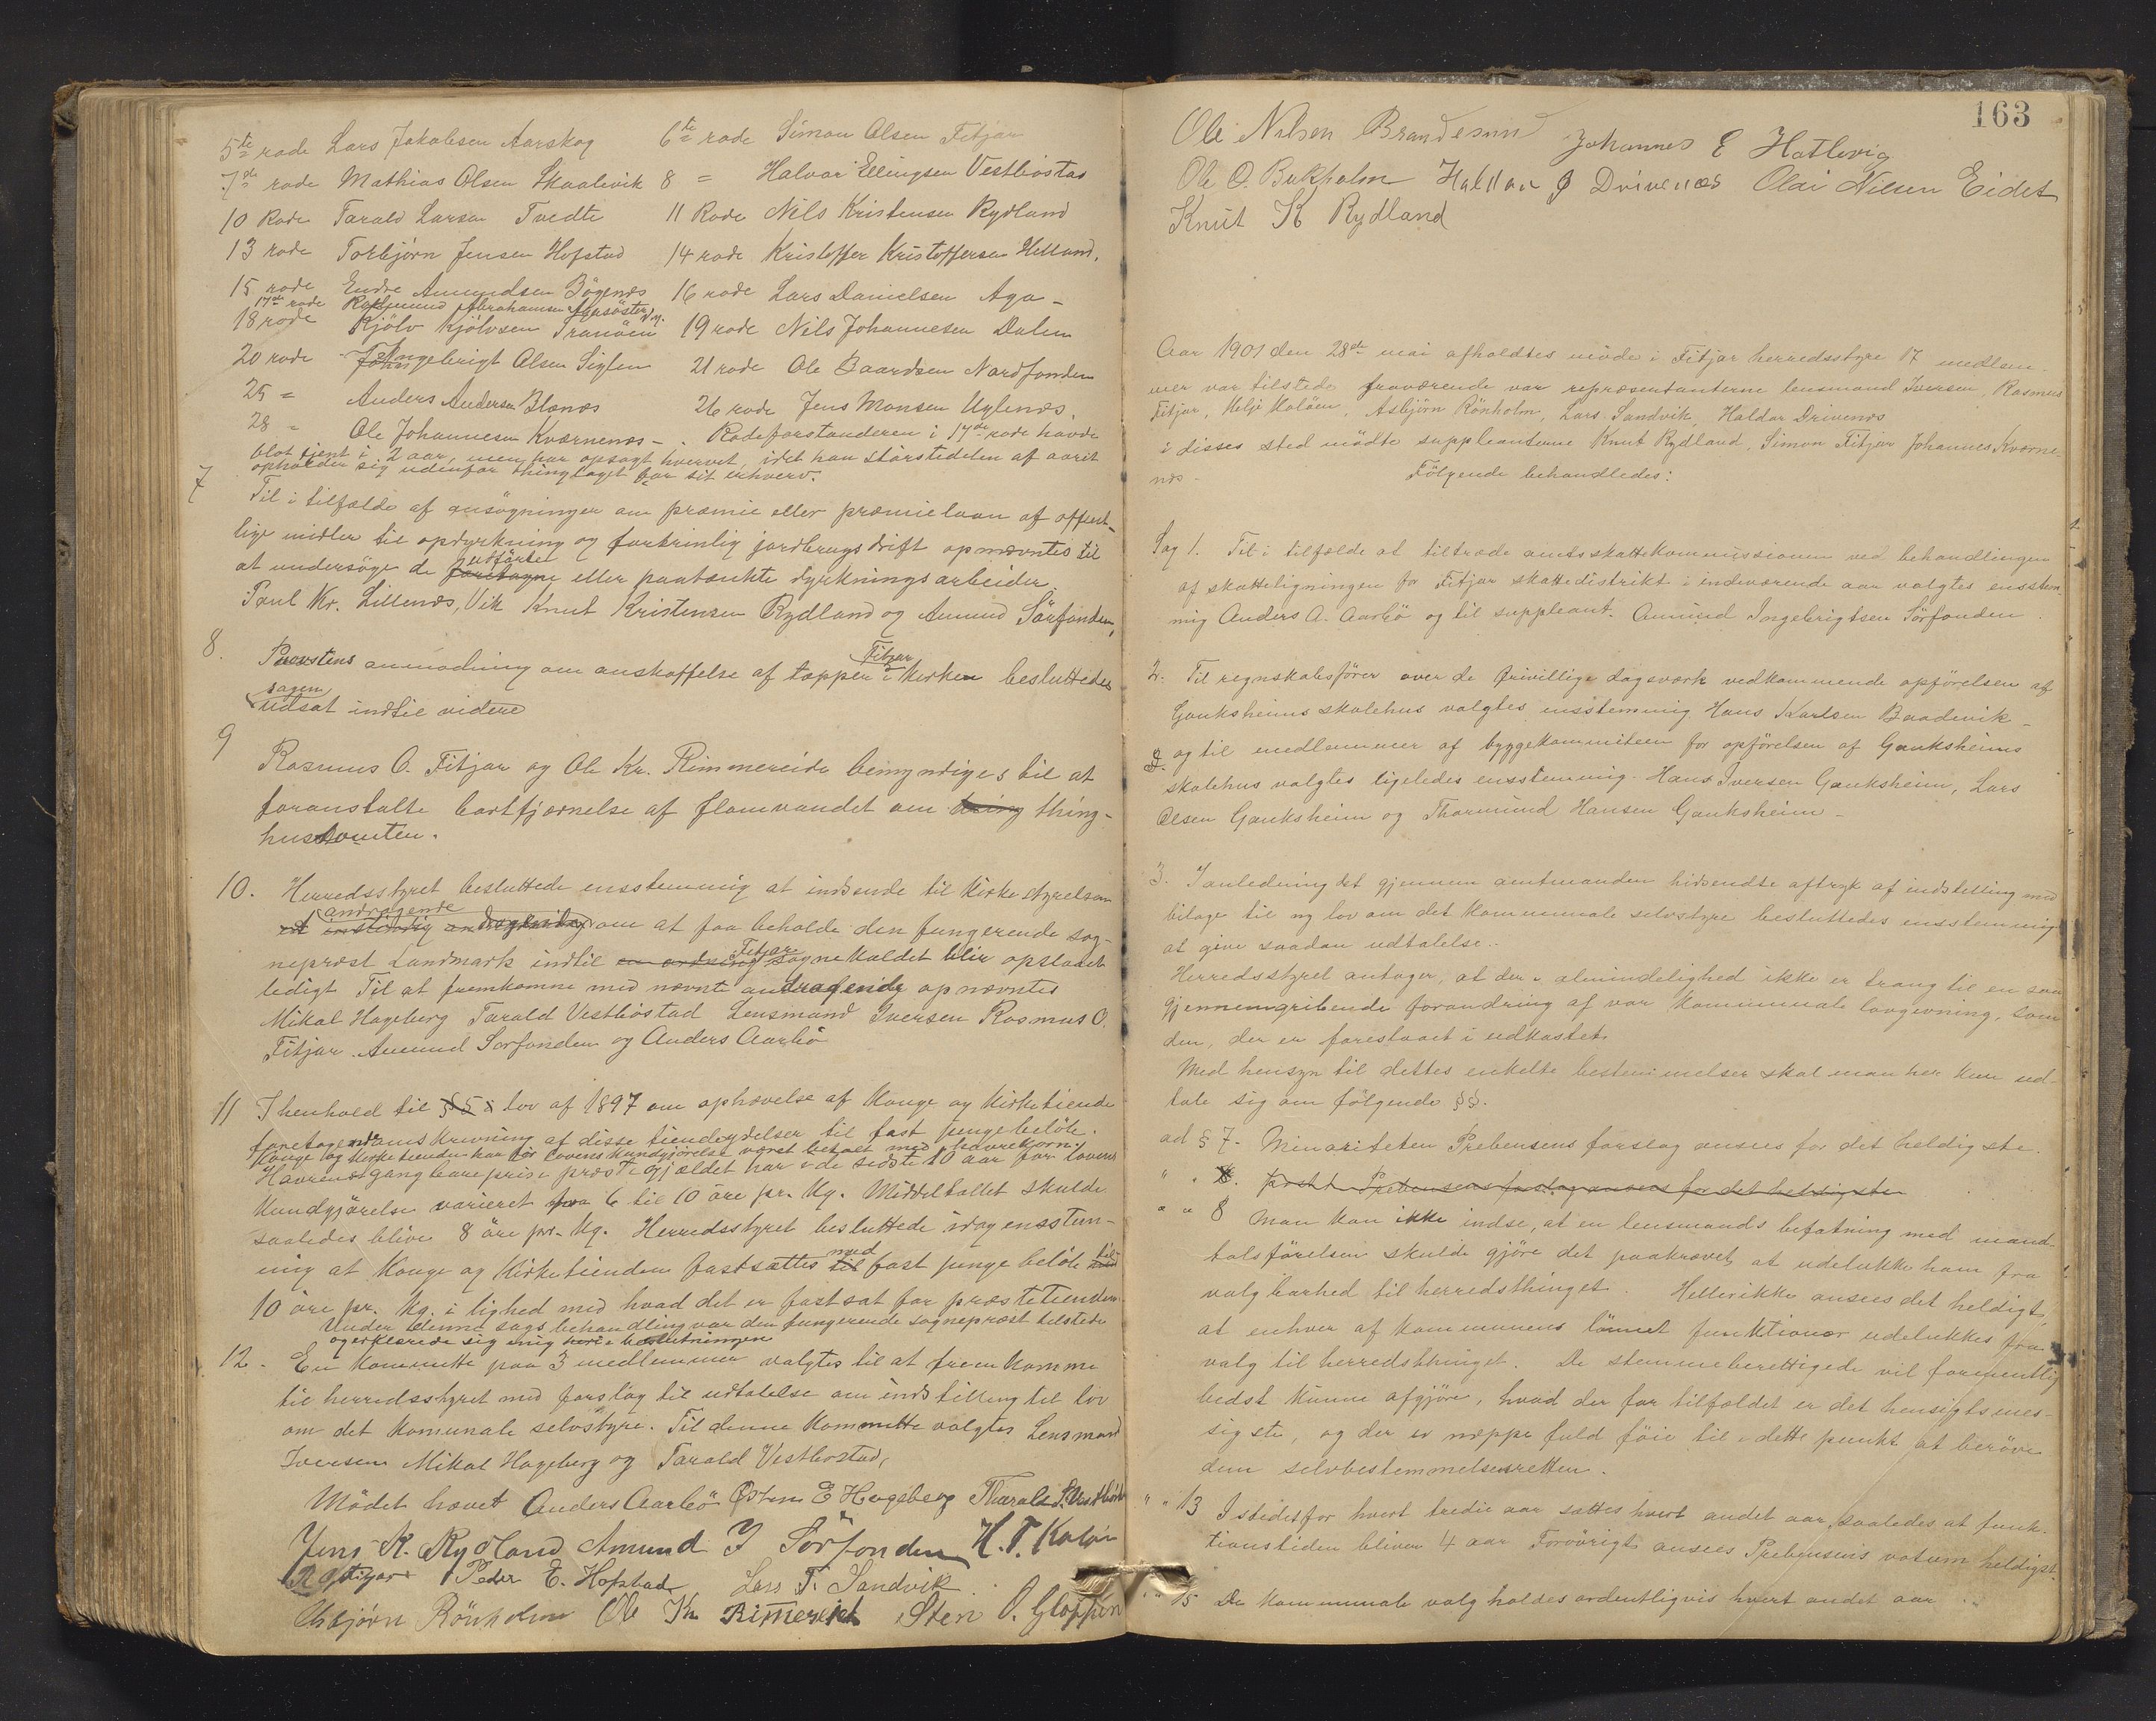 5te rode Lars Jakobsen Aarskog 6te rode Simon Olsen Fitjar
7de rode Mathias Olsen Skaalevik 8 = Halvor Ellingsen Vestbóstad
10 Rode Tarald Larsen Tvedte 11 Rode Nils Kristensen Rydland
13 rode Torbjørn Jensen Hofstad 14 rode Kristoffer Kristoffersen Helland.
15 rode Endre Amundsen Bögenæs 16 rode Lars Danielsen Aga -
17de rode Abrahamsen
18 rode Kjölv Kjölvsen Tranöen 19 rode Nils Johannesen Dalen
20 rode Ingebrigt Olsen Siglen 21 rode Ole Baardsen Nordfonden
25 = Anders Andersen Blænæs 26 rode Jens Monsen Uglenæs.
28 - Ole Johannesen Kværnenæs - . Rodeforstanderen i 17de rode havde
blot tjent i 2 aar, men har opsagt hvervet, idet han störstedelen af aaret
opholder sig udenfor thinglaget for sit erhverv.
7 Til i tilfælde af ansögninger om præmie eller præmielaan af offent-
lige midler til opdyrkning og fortrinlig jordbrugsdrift opnævntes til
at undersöge de foretagne udförte eller paatænkte dyrkningsarbeider.
Paul Kr. Lillenæs, Vik Knut Kristensen Rydland og Amund Sörfonden,
8. Provstens anmodning om anskaffelse af tæpper i Fitjar Kirken besluttedes
sagen
udsat indtil videre
9 Rasmus O. Fitjar og Ole Kr. Rimmereide bemyndiges til at
foranstalte bortfjærnelse af flomvandet om thing-
hustomten.
10. Herredsstyret besluttede ensstemmig at indsende til Kirkestyrelsen
andragende
et enstemmig andragende om at faa beholde den fungerende sog-
neprest Landmark indtil en ordning Fitjar sognekaldet blir opslaaet
ledigt Til at fremkomme med nævnte andragende opnævntes
Mikal Hageberg Tarald Vestbóstad Lensmand Iversen Rasmus O.
Fitjar. Amund Sorfonden og Anders Aarbö
11 I henhold til § 5 i lov af 1897 om ophævelse af Konge og Kirketiende
foretoges omskrivning af disse tiendeydelser til fast pengebelöb.
Konge og Kirketienden har för lovens kundgjörelse været betalt med havrekorn.
Havrens gangbare pris i præstegjældet har i de sidste 10 aar för lovens
Kundgjörelse varieret fra 6 til 10 öre pr. Kg. Middeltallet skulde
saaledes blive 8 öre pr. Kg. Herredsstyret besluttede idag ensstem-
mig at Konge og Kirketienden fastsættes til med fast penge belöb med til
10 öre pr. Kg. i lighed med hvad det er fastsat for præstetienden.
Under denne sags behandling var den fungerende sogneprest tilstede
og erklærede sig enig heri i beslutningen
12. En Kommitte paa 3 medlemmer valgtes til at fremkomme
til herredsstyret med forslag til udtalelse om indstilling til lov
om det komunale selvstyre. Til denne Kommitte valgtes Lensmand
Iversen Mikal Hageberg og Tarald Vestbostad,
Mödet hævet Anders Aarbö Østen E Hageberg Tharald L. Vestbö
Jens K. Rydland Amund I Sörfonden H. T. Kalöen
R O Fitjar Peder E. Hofstad Lars T. Sandvik
Asbjörn Rönholm Ole Kr Rimereid Sten O. Gloppen
163
Ole Nilsen Brandesund Johannes E Hatlevig
Ole O. Bukholm Haldor J Drivenæs Olai Nilsen Eidet
Knut K Rydland
Aar 1901 den 28de mai afholdtes möde i Fitjar herredsstyre 17 medlem-
mer var tilstede fraværende var repræsentanterne lensmand Iversen, Rasmus
Fitjar, Helje Kalöen, Asbjörn Rönholm, Lars Sandvik, Haldor Drivenæs
i disses sted mödte suppleanterne Knut Rydland, Simon Fitjar Johannes Kværne-
næs - Fölgende behandledes:
Sag 1. Til i tilfælde at tiltræde amtsskattekommissionen ved behandlingen
af skatteligningen for Fitjar skattedistrikt i indeværende aar valgtes ensstem-
mig Anders A. Aarbö og til suppleant. Amund Ingebrigtsen Sörfonden
2. Til regnskabsförer over de frivillige dagsværk vedkommende opförelsen af
Gouksheims skolehus valgtes ensstemmig Hans Karlsen Baadevik -
og til medlemmer af byggekommiteen for opförelsen af Gouksheims
skolehus valgtes ligeledes ensstemmig. Hans Iversen Gouksheim, Lars
Olsen Gouksheim og Thormund Hansen Gouksheim -
3. I anledning det gjennem amtmanden hidsendte aftryk af indstilling med
bilage til ny lov om det kommunale selvstyre besluttedes ensstemmig
at give saadan udtalelse..
Herredsstyret antager, at der i almindelighed ikke er trang til en saa
gjennemgribende forandring af vor kommunale lovgivning, som
den, der er foreslaaet i udkastet.
Med hensyn til dettes enkelte bestemmelser skal man her kun ud-
tale sig om fölgende §§.
ad § 7 - Minoriteten Prebensens forslag ansees for det heldigste.
" " 8. Prebensens forslag ansees for det heldigste
" " 8 Man kan ikke indse, at en lensmands befatning med mand-
talsförelsen skulde gjöre det paakrævet at udelukke ham fra
valgbarhed til herredsthinget. Hellerikke ansees det heldigt,
at enhver af kommunens lönnet funktionær udelukkes fra
valg til herredsthinget. De stemmeberettigede vil formentlig
bedst kunne afgjöre, hvad der for tilfældet er det hensigtsmes-
sigste, og der er neppe fuld föie til i dette punkt at beröve
dem selvbestemmelsesretten.
" " 13 Istedetfor hvert tredie aar sættes hvert andet aar, saaledes at funk-
tionstiden bliver 4 aar Forövrigt ansees Prebensens votum heldigst.
" " 15 De kommunale valg holdes ordentligvis hvert andet aar